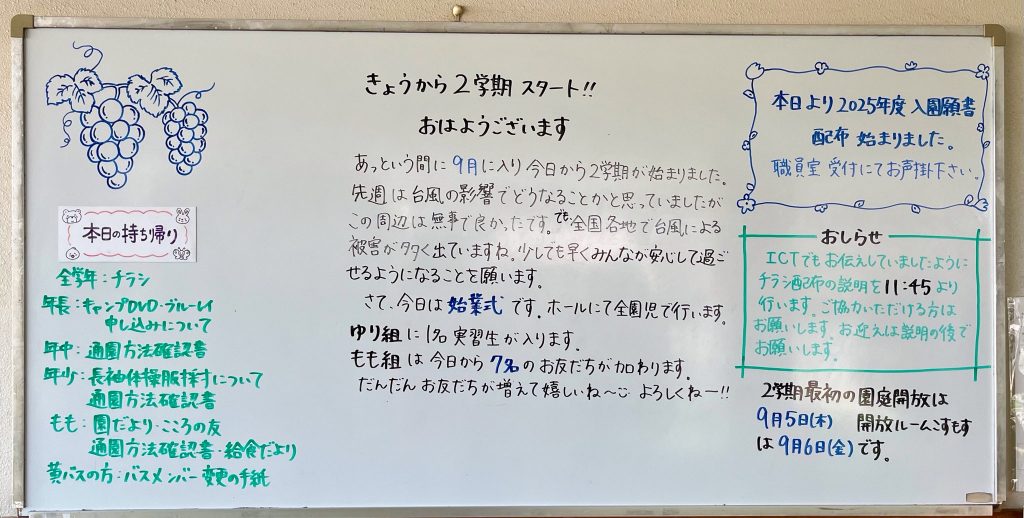 本日の持ち帰り
全学年:チラシ
年長:キャンプDVD・ブルーレイ
申し込みについて
年中:通園方法確認書
年少:長袖体操服採寸について
通園方法確認書
もも:園だより・こころの友
通園方法確認書・給食だより
黄バスの方:バスメンバー変更の手紙
きょうから2学期スタート!!
おはようございます
あっという間に9月に入り今日から2学期が始まりました。
先週は台風の影響でどうなることかと思っていましたが
この周辺は無事で良かったです。でも、全国各地で台風による
被害が多く出ていますね。少しでも早くみんなが安心して過ご
せるようになることを願います。
さて、今日は始業式です。ホールにて全園児で行います。
ゆり組に1名実習生が入ります。
もも組は今日から7名のお友だちが加わります。
だんだんお友だちが増えて嬉しいね〜 よろしくねー!!
本日より2025年度入園願書
配布始まりました。
職員室受付にてお声掛下さい。
おしらせ
ICTでもお伝えしていましたように
チラシ配布の説明を11:45より
行います。ご協力いただける方は
お願いします。お迎えは説明の後で
お願いします。
2学期最初の園庭開放は
9月5日(木) 開放ルームこすもす
は9月6日(金)です。